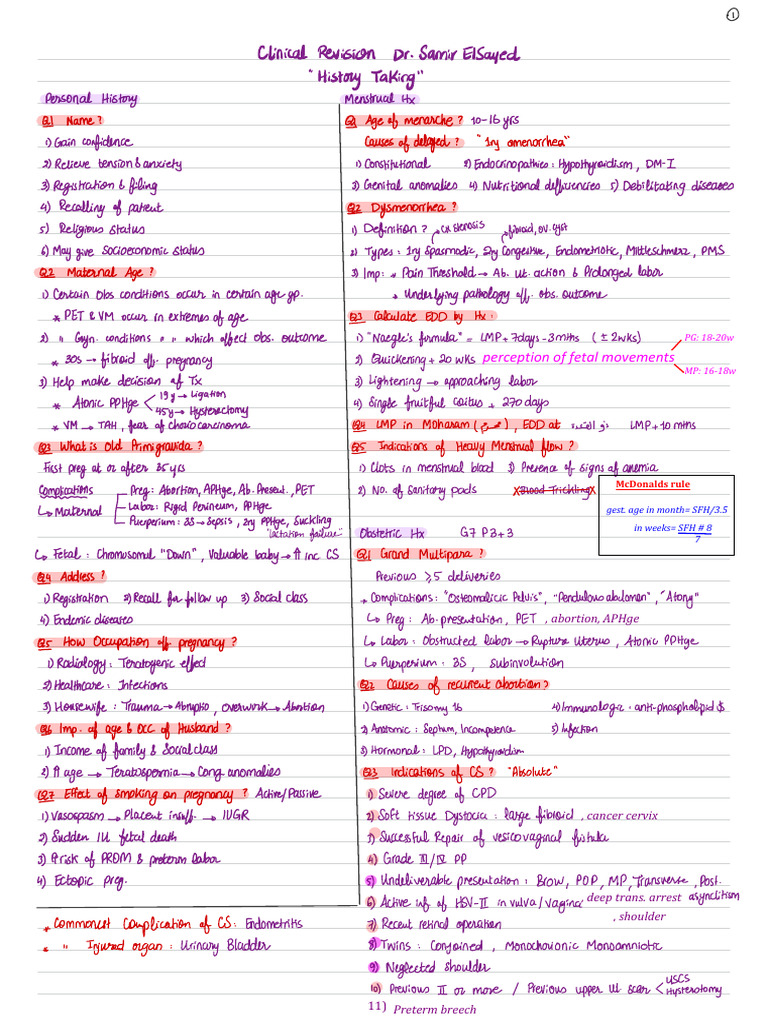 1
Clinical Revision Dr. Samir ElSayed
"History Taking"
Personal History
Q1 Name?
1) Gain confidence
2) Relieve tension & anxiety
3) Registration & filing
4) Recalling of patient
5) Religious status
6) May give socioeconomic status
Q2 Maternal Age?
1) Certain Obs conditions occur in certain age gp.
* PET & VM occur in extremes of age
2) " Gyn. conditions " " which affect Obs. outcome
* 30s → fibroid off. pregnancy
3) Help make decision of Tx
* Atonic PPHge < 19y → Ligation
45y → Hysterectomy
* VM → TAH, fear of choriocarcinoma
Q3 What is Old Primigravida?
First preg at or after 35 yrs
Complications
↳ Maternal
Preg: Abortion, APHge, Ab. Present., PET
Labor: Rigid Perineum, APHge
Puerperium: 3S → Sepsis, 2ry PPHge, Suckling
"lactation failure"
↳ Fetal: Chromosomal "Down", Valuable baby → ↑ inc CS
Q4 Address?
1) Registration 2) Recall for follow up 3) Social class
4) Endemic diseases
Q5 How Occupation off pregnancy?
1) Radiology: Teratogenic effect
2) Healthcare: Infections
3) Housewife: Trauma → Abruptio, overwork → Abortion
Q6 Imp. of age & OCC of Husband?
1) Income of family & Social class
2) ↑ age → Teratospermia → Cong. anomalies
Q7 Effect of smoking on pregnancy? Active/Passive
1) Vasospasm → Placent insuff. → IUGR
2) Sudden IU fetal death
3) ↑ risk of PROM & preterm labor
4) Ectopic preg.
* Commonest Complication of CS: Endometritis
* " Injured organ: Urinary Bladder
Menstrual Hx
Q1 Age of menarche? 10-16 yrs
Causes of delayed? "1ry amenorrhea"
1) Constitutional 2) Endocrinopathies: Hypothyroidism, DM-I
3) Genital anomalies 4) Nutritional deficiencies 5) Debilitating diseases
Q2 Dysmenorrhea?
1) Definition? CX stenosis fibroid, ov. cyst
2) Types: 1ry Spasmodic, 2ry Congestive, Endometriotic, Mittleschmerz, PMS
3) Imp: * Pain Threshold → Ab. ut. action & Prolonged labor
* Underlying pathology off. obs. outcome
Q3 Calculate EDD by Hx:
1) "Naegle's formula" = LMP + 7days - 3mths (± 2wks)
PG: 18-20w
2) Quickening + 20 wks perception of fetal movements
MP: 16-18w
3) Lightening → approaching labor
4) Single fruitful coitus + 270 days
Q4 LMP in Moharam (محرم), EDD at ذو القعدة LMP + 10 mths
Q5 Indications of Heavy Menstrual flow?
1) Clots in menstrual blood 3) Presence of signs of anemia
2) No. of Sanitary pads X Blood Trickling X
McDonalds rule
gest. age in month= SFH/3.5
in weeks= SFH # 8
7
Obstetric Hx G7 P3+3
Q1 Grand Multipara?
Previous ≥5 deliveries
. Complications: "Osteomalicic Pelvis", "Pendulous abdomen", "Atony"
↳ Preg: Ab. presentation, PET , abortion, APHge
↳ Labor: Obstructed labor → Rupture Uterus, Atonic PPHge
↳ Puerperium: 3S, subinvolution
Q2 Causes of recurrent abortion?
1) Genetic: Trisomy 16 4) Immunologic: anti-phospholipid $
2) Anatomic: Septum, Incompetence 5) Infection
3) Hormonal: LPD, Hypothyroidism
Q3 Indications of CS? "Absolute"
1) Severe degree of CPD
2) Soft tissue Dystocia: large fibroid , cancer cervix
3) Successful Repair of vesicovaginal fistula
4) Grade III/IV PP
5) Undeliverable presentation: Brow, POP, MP, Transverse, Post.
6) Active inf. of HSV-II in vulva/vagina deep trans. arrest asynclitism
, shoulder
7) Recent retinal operation
8) Twins: Conjoined, Monochorionic Monoamniotic
9) Neglected shoulder
10) Previous II or more / Previous upper Ut scar < USCS
Hysterotomy
11) Preterm breech